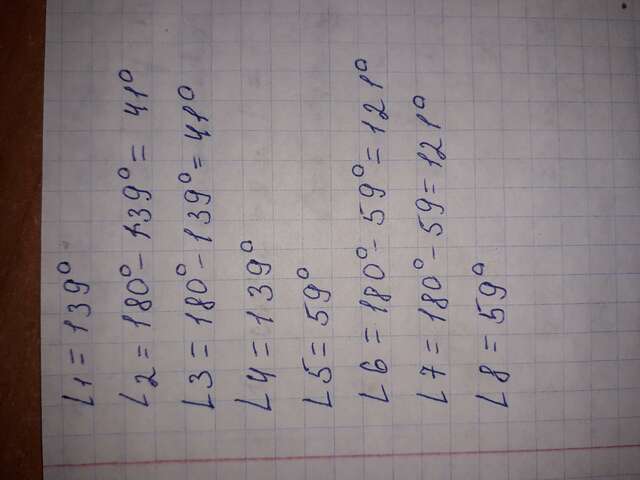 ∠1 = 139°
∠2 = 180° - 139° = 41°
∠3 = 180° - 139° = 41°
∠4 = 139°
∠5 = 59°
∠6 = 180° - 59° = 121°
∠7 = 180° - 59 = 121°
∠8 = 59°